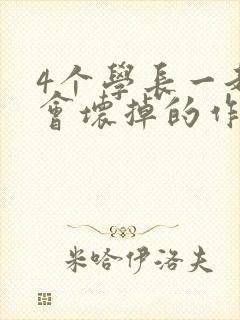 4个學長一起
會壞掉的作
米哈伊洛夫